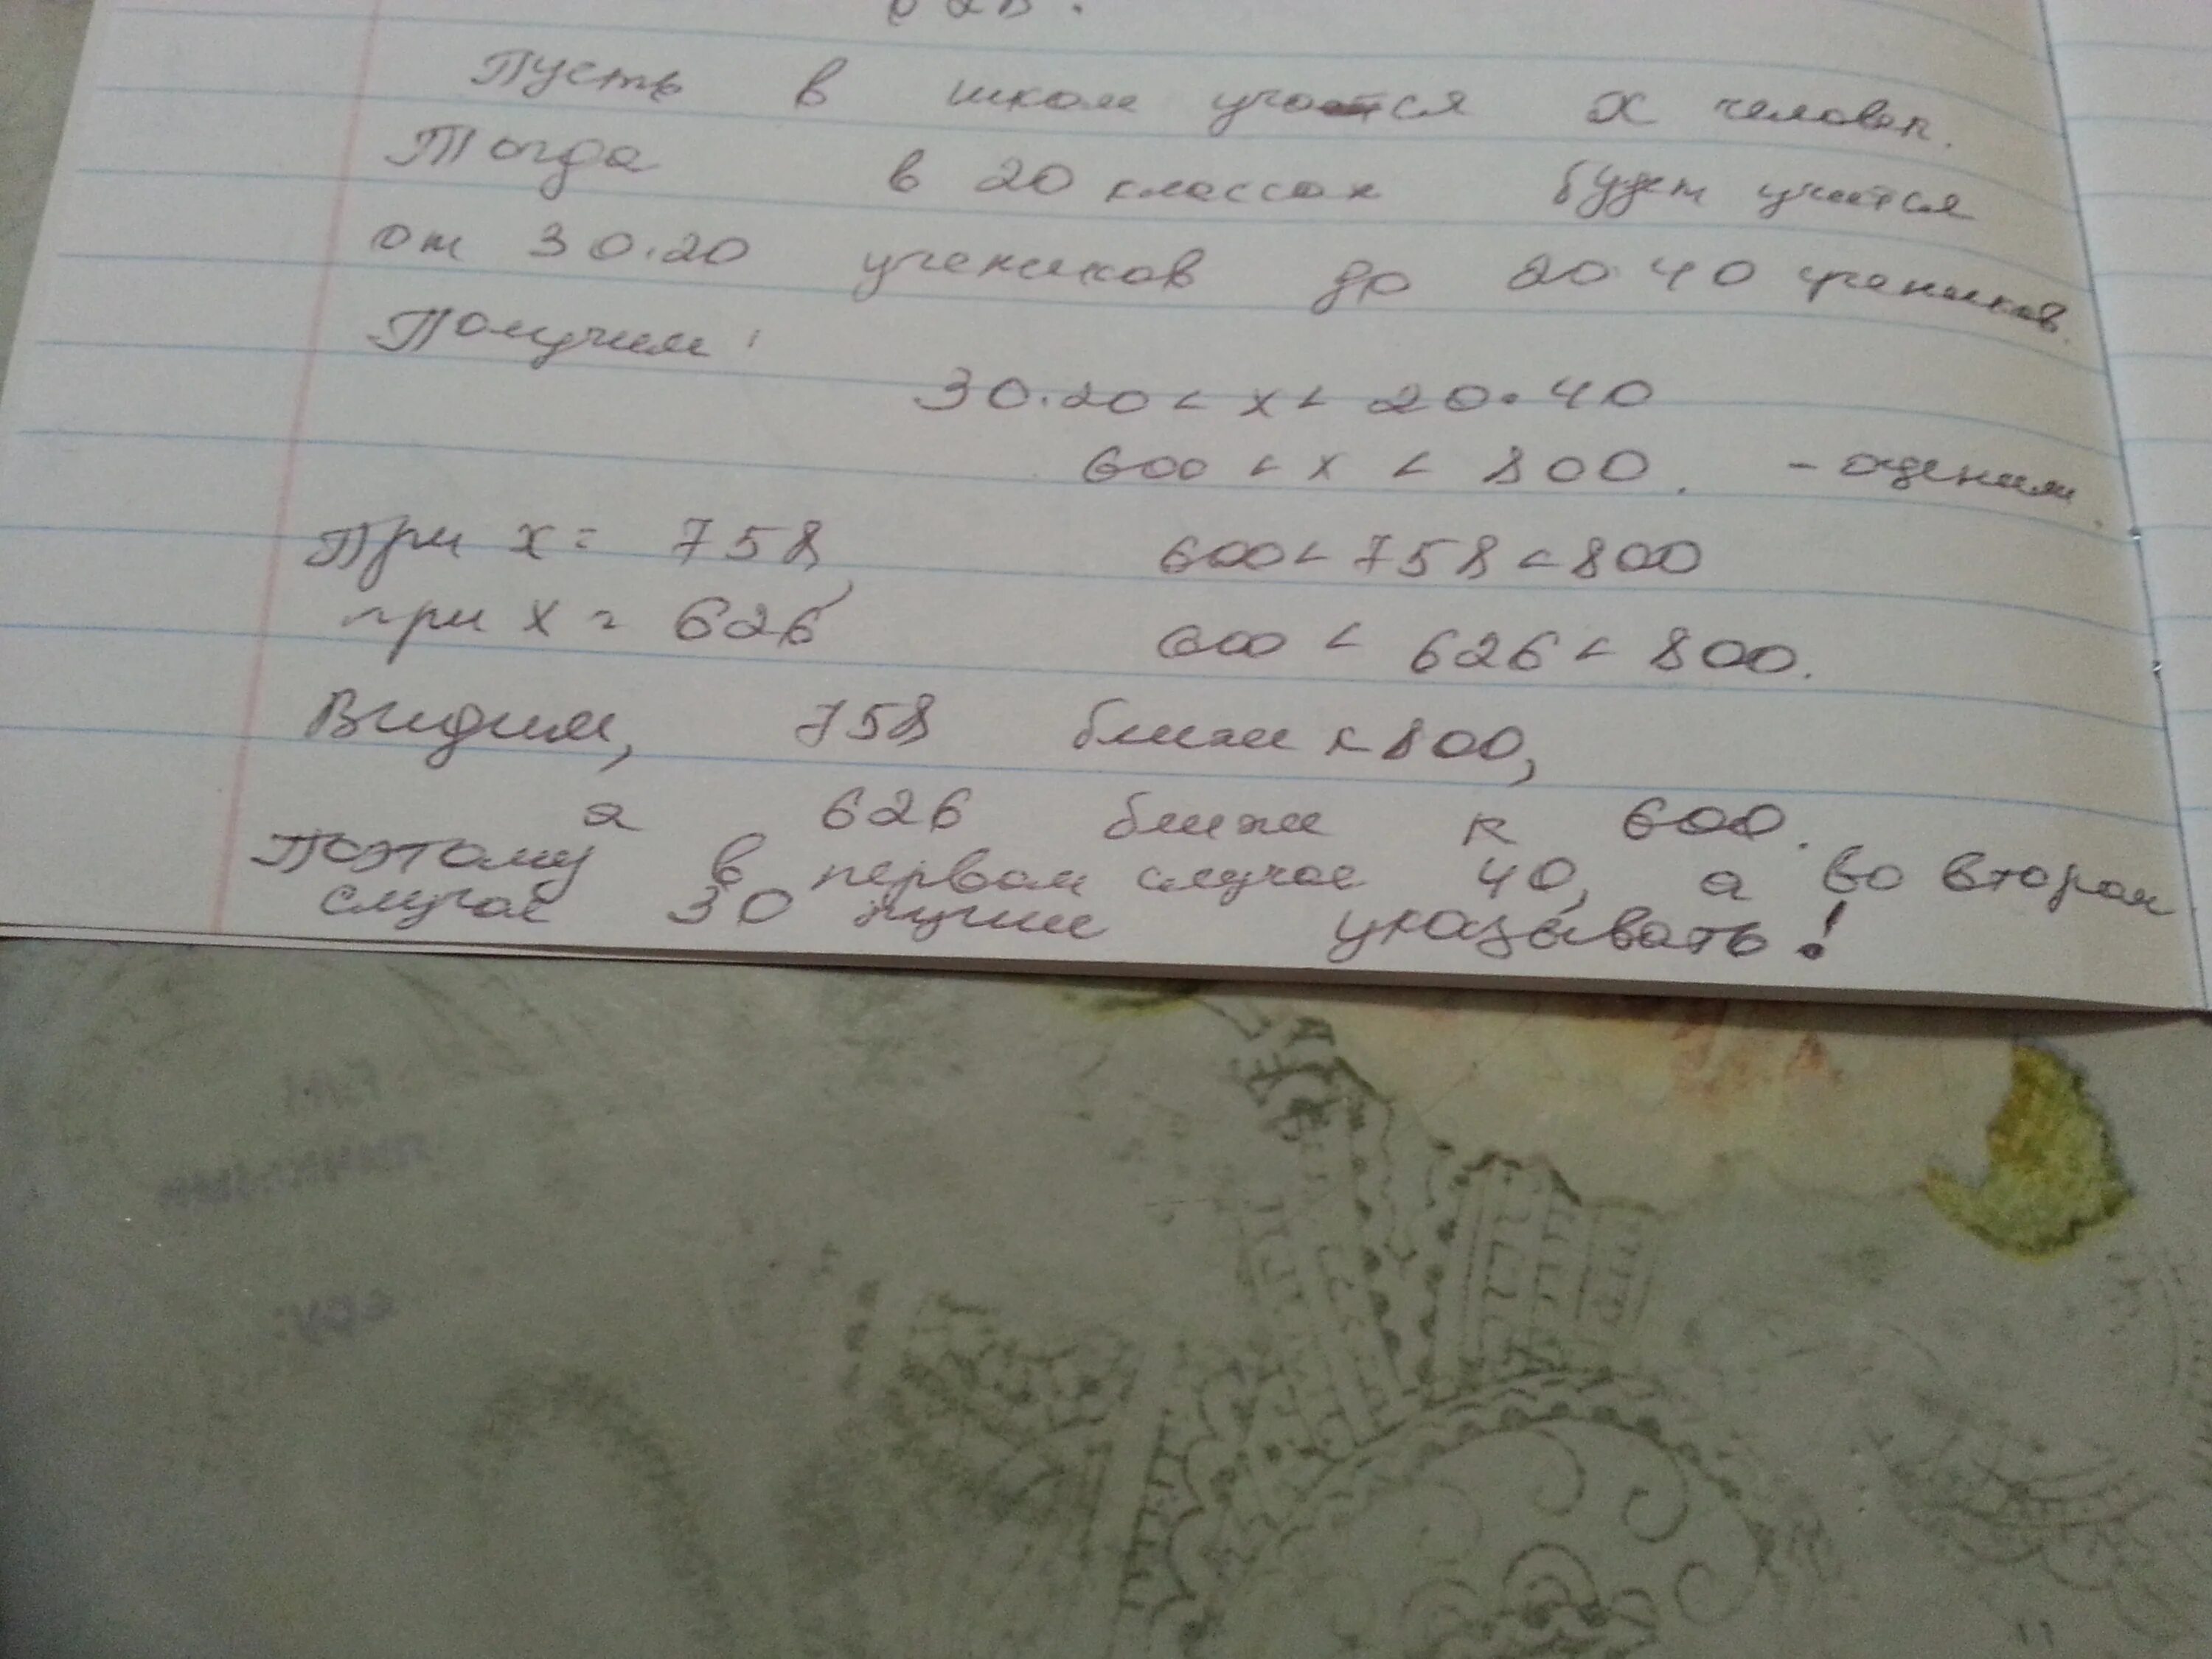 Пусть в школе учатся x человек.
Тогда в 20 классах будет учится
от 30·20 учеников до 20·40 учеников.
Получим:
30·20 < x < 20·40
600 < x < 800. - оценим.
При x = 758, 600 < 758 < 800
при x = 626 600 < 626 < 800.
Видим, 758 ближе к 800,
а 626 ближе к 600.
Поэтому в первом случае 40, а во втором
случае 30 лучше указывать!